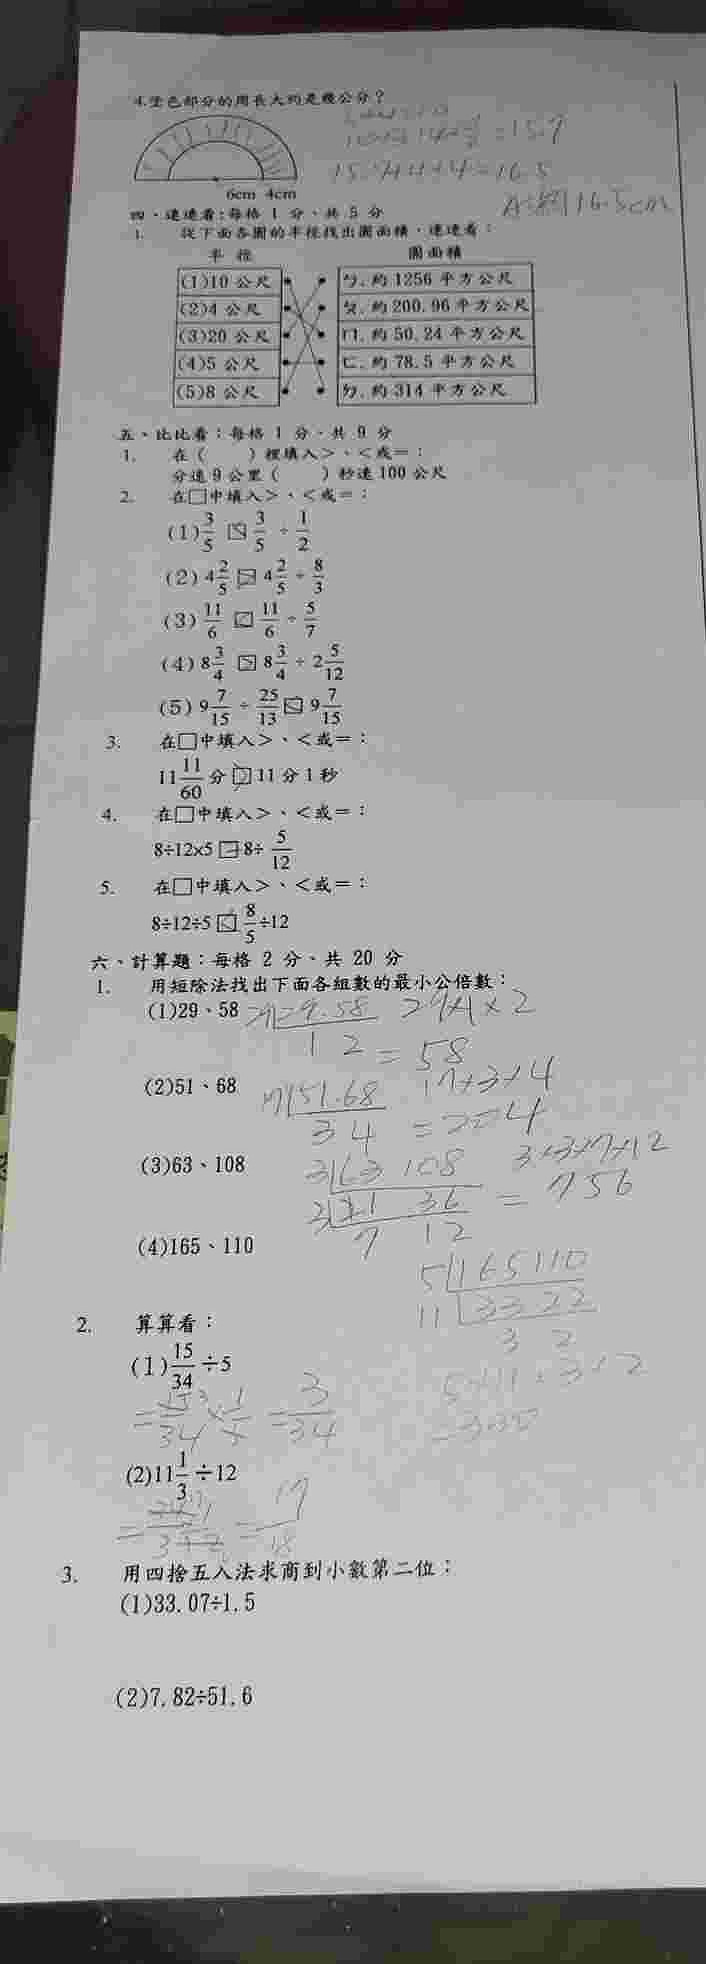 4.塗色部分的周長大約是幾公分？
=15.7
15.7+4+4=16.5
A:約16.5cm
6cm 4cm
四、連連看：每格 1 分、共 5 分
1. 從下面各圓的半徑找出圓面積，連連看：
半徑 圓面積
(1)10 公尺 ㄅ.約 1256 平方公尺
(2)4 公尺 ㄆ.約 200.96 平方公尺
(3)20 公尺 ㄇ.約 50.24 平方公尺
(4)5 公尺 ㄈ.約 78.5 平方公尺
(5)8 公尺 ㄉ.約 314 平方公尺
五、比比看：每格 1 分、共 9 分
1. 在（ ）裡填入＞、＜或＝：
分速 9 公里（ ）秒速 100 公尺
2. 在□中填入＞、＜或＝：
(1) 3/5 □ 3/5 ÷ 1/2
(2) 4 2/5 □ 4 2/5 ÷ 8/3
(3) 11/6 □ 11/6 ÷ 5/7
(4) 8 3/4 □ 8 3/4 ÷ 2 5/12
(5) 9 7/15 ÷ 25/13 □ 9 7/15
3. 在□中填入＞、＜或＝：
11 11/60 分 □ 11 分 1 秒
4. 在□中填入＞、＜或＝：
8÷12×5 □ 8÷ 5/12
5. 在□中填入＞、＜或＝：
8÷12÷5 □ 8/5 ÷12
六、計算題：每格 2 分、共 20 分
1. 用短除法找出下面各組數的最小公倍數：
(1)29、58 29 29.58 29×1×2
1 2 = 58
(2)51、68 17 51.68 17×3×4
3 4 =204
(3)63、108 3 63 108 3×3×7×12
3 21 36 = 756
7 12
(4)165、110
5 165 110
11 33 22
3 2
5×11×3×2
=330
2. 算算看：
(1) 15/34 ÷5
= 15/34 × 1/5 = 3/34
(2)11 1/3 ÷12
= 17/18
3. 用四捨五入法求商到小數第二位：
(1)33.07÷1.5
(2)7.82÷51.6